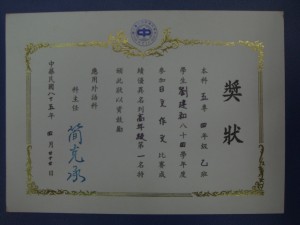 獎狀
本科 五專 四 年級 乙班
學生 劉建和 八十四 學年度
參加日文作文比賽成
績優異名列高年級第一名特
頒此狀以資鼓勵
應用外語科
科主任
中華民國八十五年 四月 廿十日